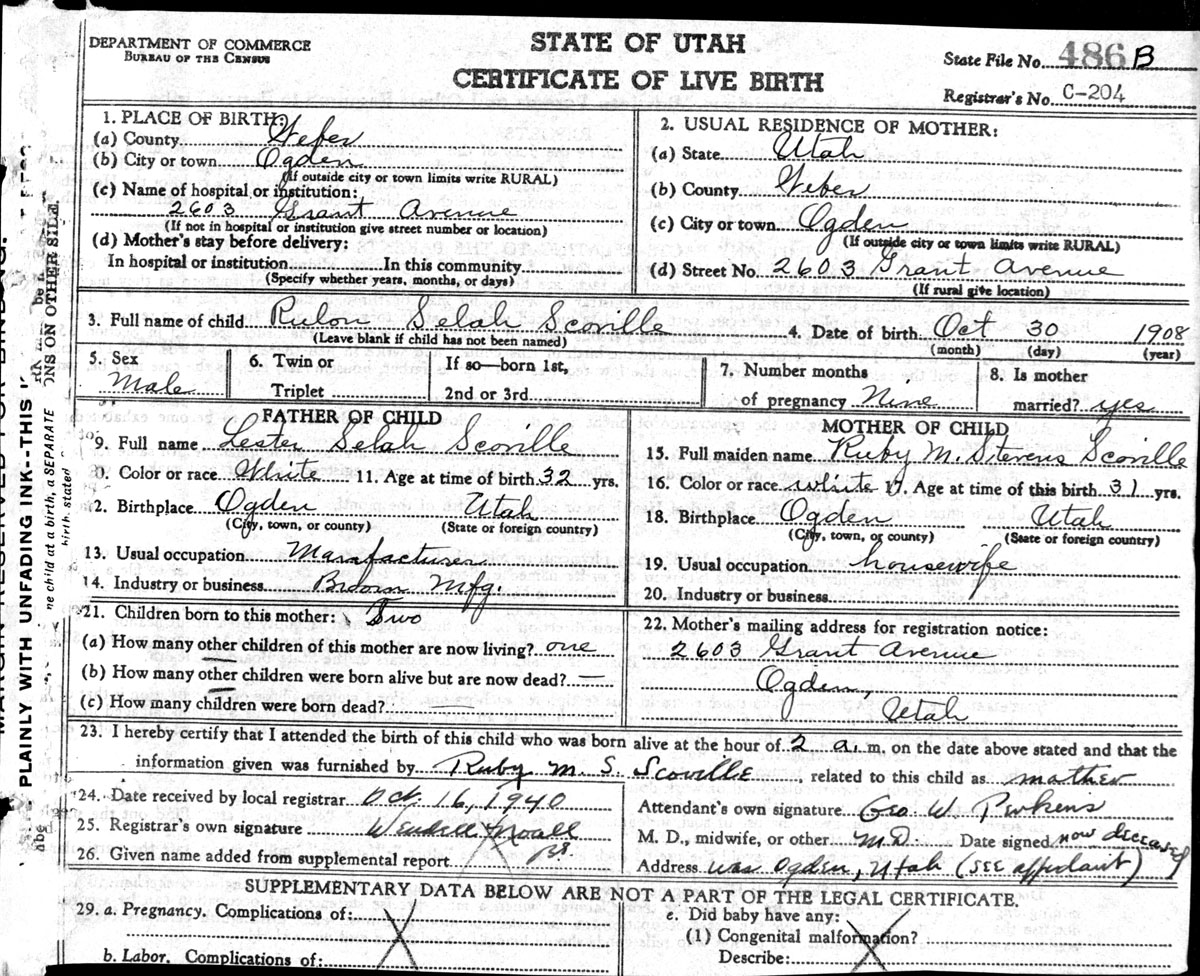 DEPARTMENT OF COMMERCE
BUREAU OF THE CENSUS
STATE OF UTAH
CERTIFICATE OF LIVE BIRTH
State File No. 486 B
Registrar's No. C-204
1. PLACE OF BIRTH:
(a) County Weber
(b) City or town Ogden
(If outside city or town limits write RURAL)
(c) Name of hospital or institution:
2603 Grant Avenue
(If not in hospital or institution give street number or location)
(d) Mother's stay before delivery:
In hospital or institution............In this community............
(Specify whether years, months, or days)
2. USUAL RESIDENCE OF MOTHER:
(a) State Utah
(b) County Weber
(c) City or town Ogden
(If outside city or town limits write RURAL)
(d) Street No. 2603 Grant Avenue
(If rural give location)
3. Full name of child Rulon Selah Scoville
(Leave blank if child has not been named)
4. Date of birth Oct 30 1908
(month) (day) (year)
5. Sex
Male
6. Twin or
Triplet
If so—born 1st,
2nd or 3rd
7. Number months
of pregnancy Nine
8. Is mother
married? yes
FATHER OF CHILD
9. Full name Lester Selah Scoville
0. Color or race White 11. Age at time of birth 32 yrs.
2. Birthplace Ogden Utah
(City, town, or county) (State or foreign country)
13. Usual occupation Manufacturer
14. Industry or business Broom Mfg.
MOTHER OF CHILD
15. Full maiden name Ruby M. Stevens Scoville
16. Color or race white 17. Age at time of this birth 31 yrs.
18. Birthplace Ogden Utah
(City, town, or county) (State or foreign country)
19. Usual occupation housewife
20. Industry or business
21. Children born to this mother: Two
(a) How many other children of this mother are now living? one
(b) How many other children were born alive but are now dead? —
(c) How many children were born dead? —
22. Mother's mailing address for registration notice:
2603 Grant Avenue
Ogden,
Utah
23. I hereby certify that I attended the birth of this child who was born alive at the hour of 2 a. m. on the date above stated and that the
information given was furnished by Ruby M. S. Scoville, related to this child as mother
24. Date received by local registrar Oct. 16, 1940
25. Registrar's own signature Wendell Noall
26. Given name added from supplemental report
Attendant's own signature Geo W. Perkins
M. D., midwife, or other M.D. Date signed now deceased
Address was Ogden, Utah (SEE affidavit)
SUPPLEMENTARY DATA BELOW ARE NOT A PART OF THE LEGAL CERTIFICATE.
29. a. Pregnancy. Complications of:
b. Labor. Complications of:
e. Did baby have any:
(1) Congenital malformation?
Describe:
PLAINLY WITH UNFADING INK--THIS
ne child at a birth, a SEPARATE
birth, stated
ONS ON OTHER SIDE